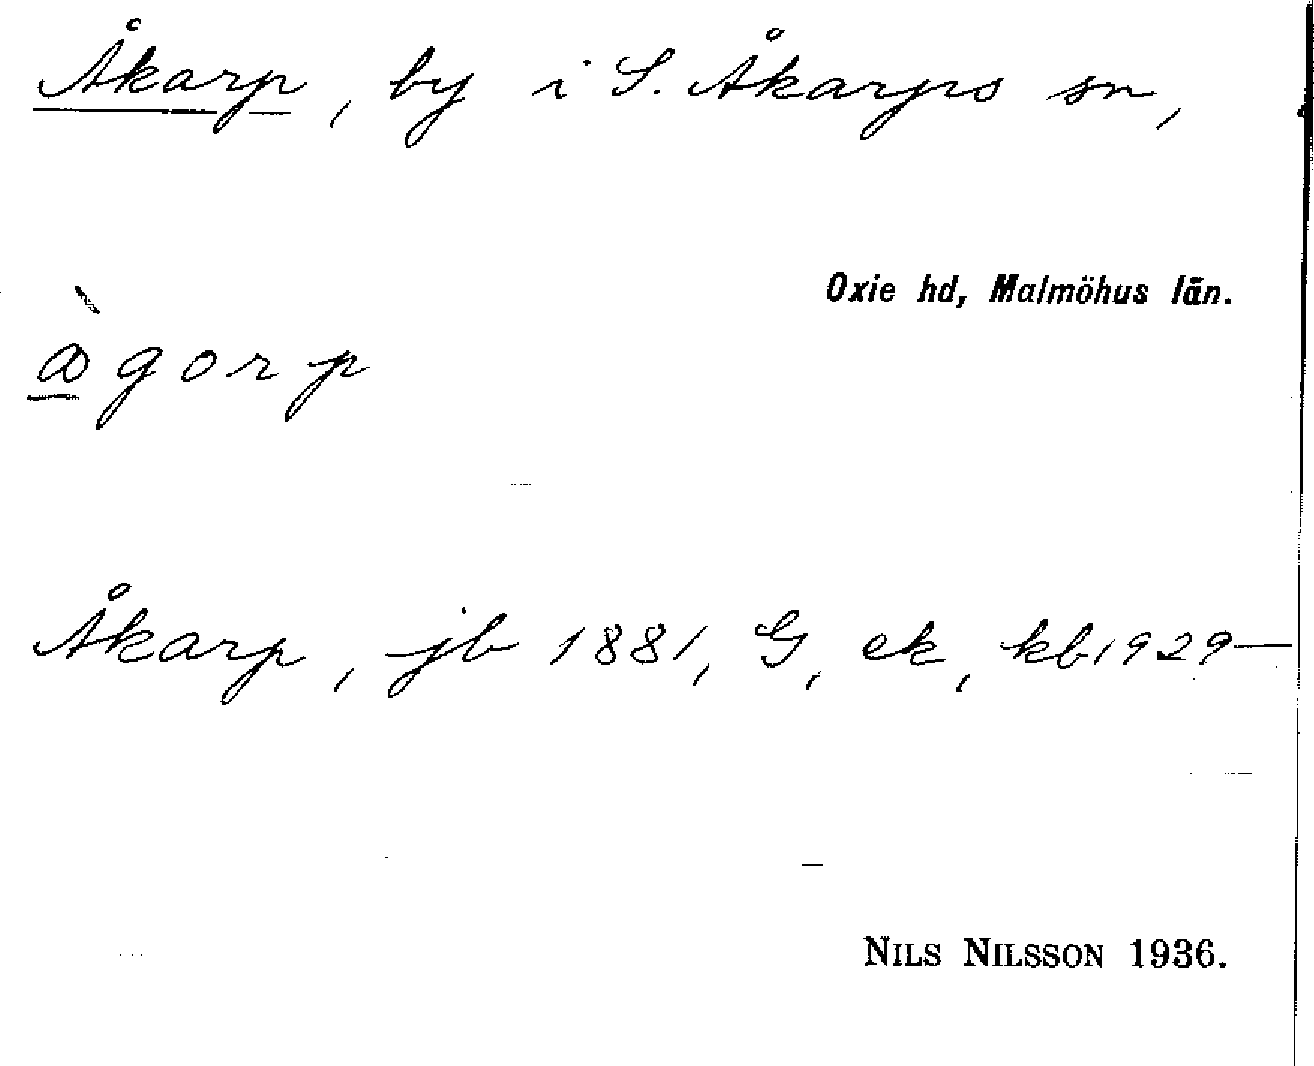 Åkarp, by i S. Åkarps sn,
Oxie hd, Malmöhus län.
àgorp
Åkarp, jb 1881, G, ek, kb 1929—
NILS NILSSON 1936.